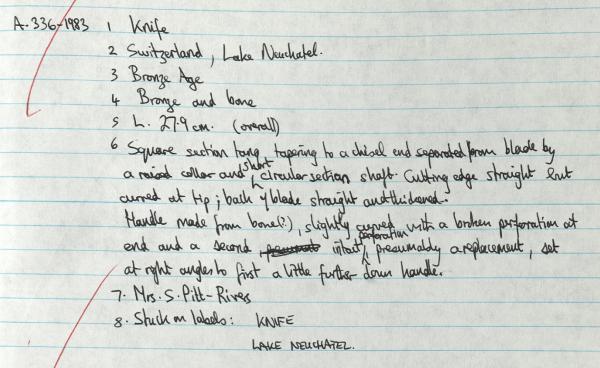 A.336-1983 1 Knife
2 Switzerland, Lake Neuchatel.
3 Bronze Age
4 Bronze and bone
5 L. 27.9 cm. (overall)
6 Square section tang tapering to a chisel end separated from blade by
a raised collar and short circular section shaft. Cutting edge straight but
curved at tip; back of blade straight and thickened.
Handle made from bone(?), slightly curved with a broken perforation at
end and a second intact perforation, presumably a replacement, set
at right angles to first a little further down handle.
7. Mrs. S. Pitt-Rivers
8. Stuck on labels: KNIFE
LAKE NEUCHATEL.